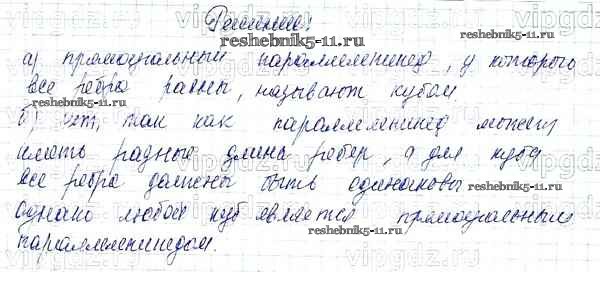 Решение:
а) прямоугольный параллелепипед, у которого
все ребра равны, называют кубом.
б) нет, так как параллелепипед может
иметь разную длина ребер, а для куба
все ребра должны быть одинаковы.
Однако любой куб является прямоугольным
параллелепипедом.
reshebnik5-11.ru
reshebnik5-11.ru
reshebnik5-11.ru
reshebnik5-11.ru
vipgdz.ru